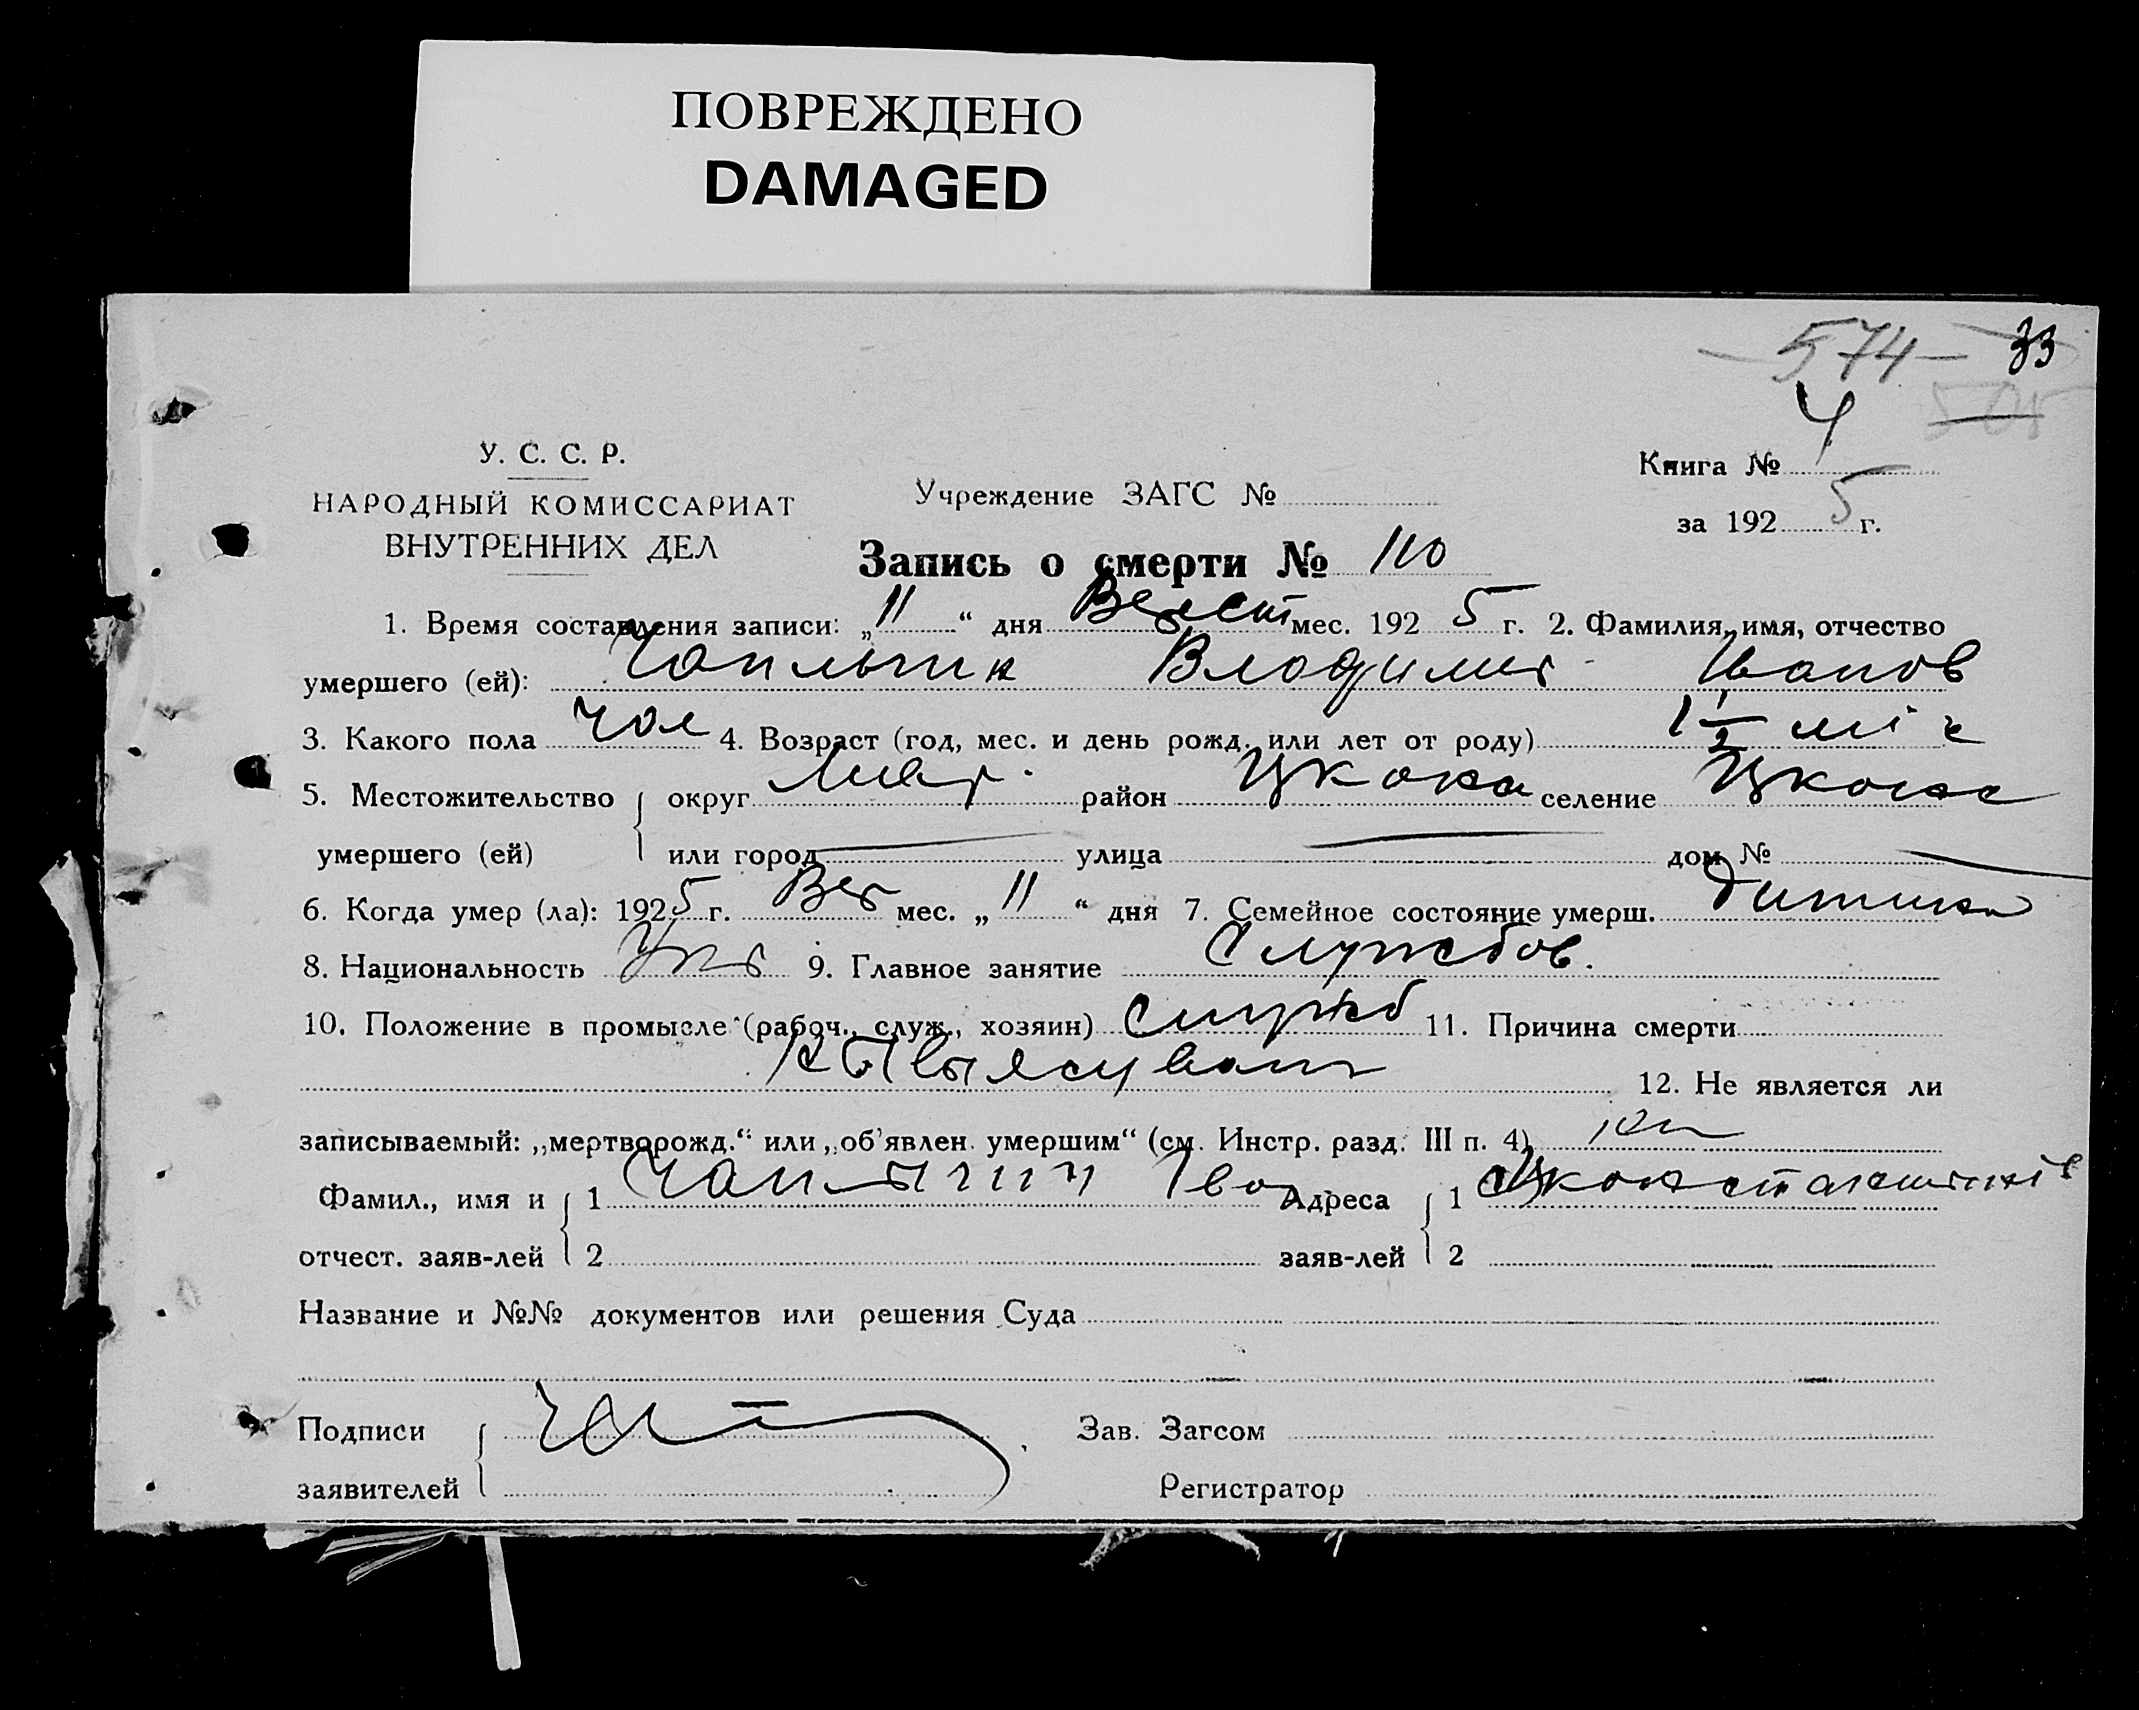 ПОВРЕЖДЕНО
DAMAGED
— 574 — 33
505
У. С. С. Р.
НАРОДНЫЙ КОМИССАРИАТ
ВНУТРЕННИХ ДЕЛ
Учреждение ЗАГС №
Книга № 4
за 1925 г.
Запись о смерти № 110
1. Время составления записи: „11“ дня Верест мес. 1925 г. 2. Фамилия, имя, отчество
умершего (ей): Чаплыгин Владимир Иванов
3. Какого пола чол 4. Возраст (год, мес. и день рожд. или лет от роду) 1 1/2 міс
5. Местожительство округ район селение
умершего (ей) или город — улица — дом № —
6. Когда умер (ла): 1925 г. Вер мес. „11“ дня 7. Семейное состояние умерш. дитина
8. Национальность Укр 9. Главное занятие Службов.
10. Положение в промысле (рабоч., служ., хозяин) Служб 11. Причина смерти
12. Не является ли
записываемый: „мертворожд.“ или „об'явлен умершим“ (см. Инстр. разд. III п. 4)
Фамил., имя и 1 Чаплыгин Іван Адреса 1
отчест. заяв-лей 2 заяв-лей 2
Название и №№ документов или решения Суда
Подписи Зав. Загсом
заявителей Регистратор